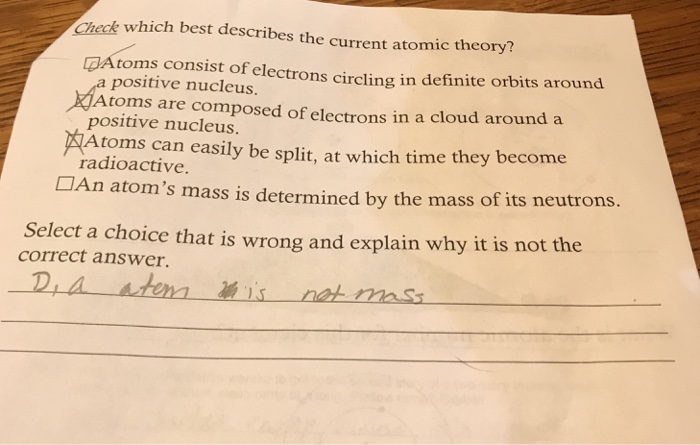 Check which best describes the current atomic theory?
Atoms consist of electrons circling in definite orbits around
a positive nucleus.
Atoms are composed of electrons in a cloud around a
positive nucleus.
Atoms can easily be split, at which time they become
radioactive.
An atom's mass is determined by the mass of its neutrons.
Select a choice that is wrong and explain why it is not the
correct answer.
D, a atem is not mass